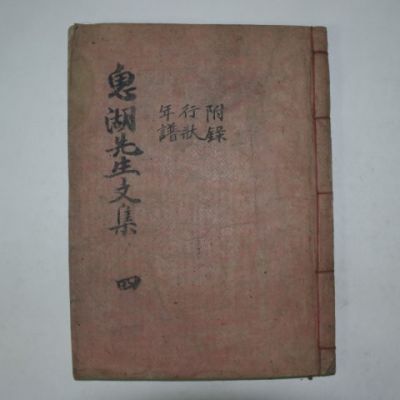 惠湖先生文集 四
附錄
行狀
年譜